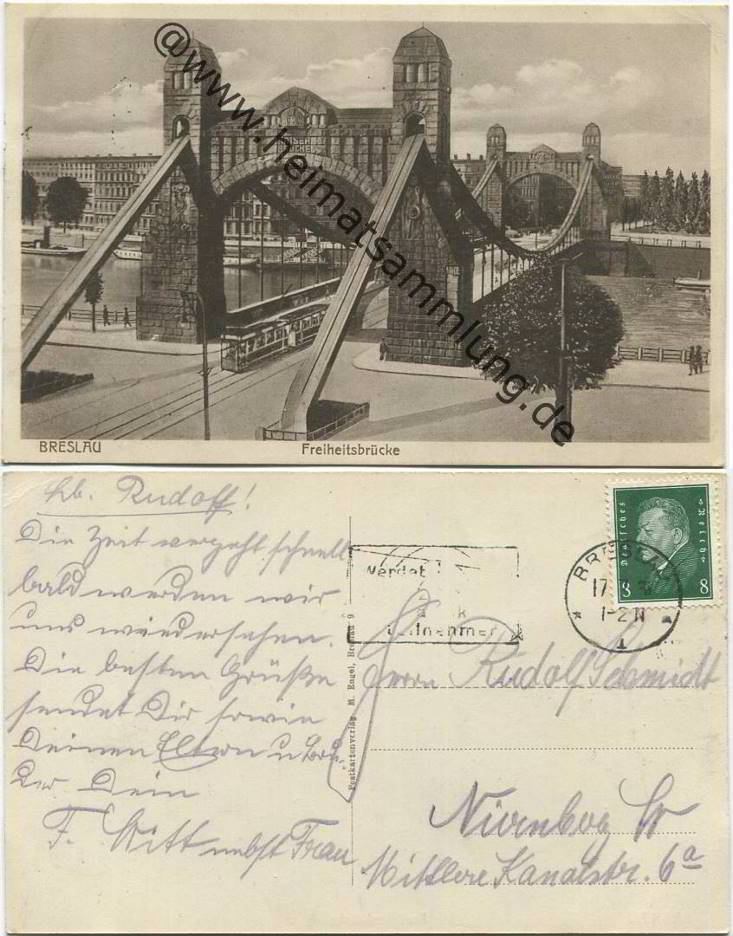 @www.heimatsammlung.de
KAISER
BRÜCKE
BRESLAU
Freiheitsbrücke
Lb. Rudolf!
Die Zeit vergeht schnell
bald werden wir
uns wiedersehen.
Die besten Grüße
sendet Dir sowie
Deinen Eltern u Bru-
der Dein
F. Witt nebst Frau
Postkartenverlag M. Engel, Breslau 9
Werdet
Funk
teilnehmer
Deutsches Reich
8 8
BRESLAU
17
1-2 N
1
Herrn Rudolf Schmidt
Nürnberg W
Mittlere Kanalstr. 6a